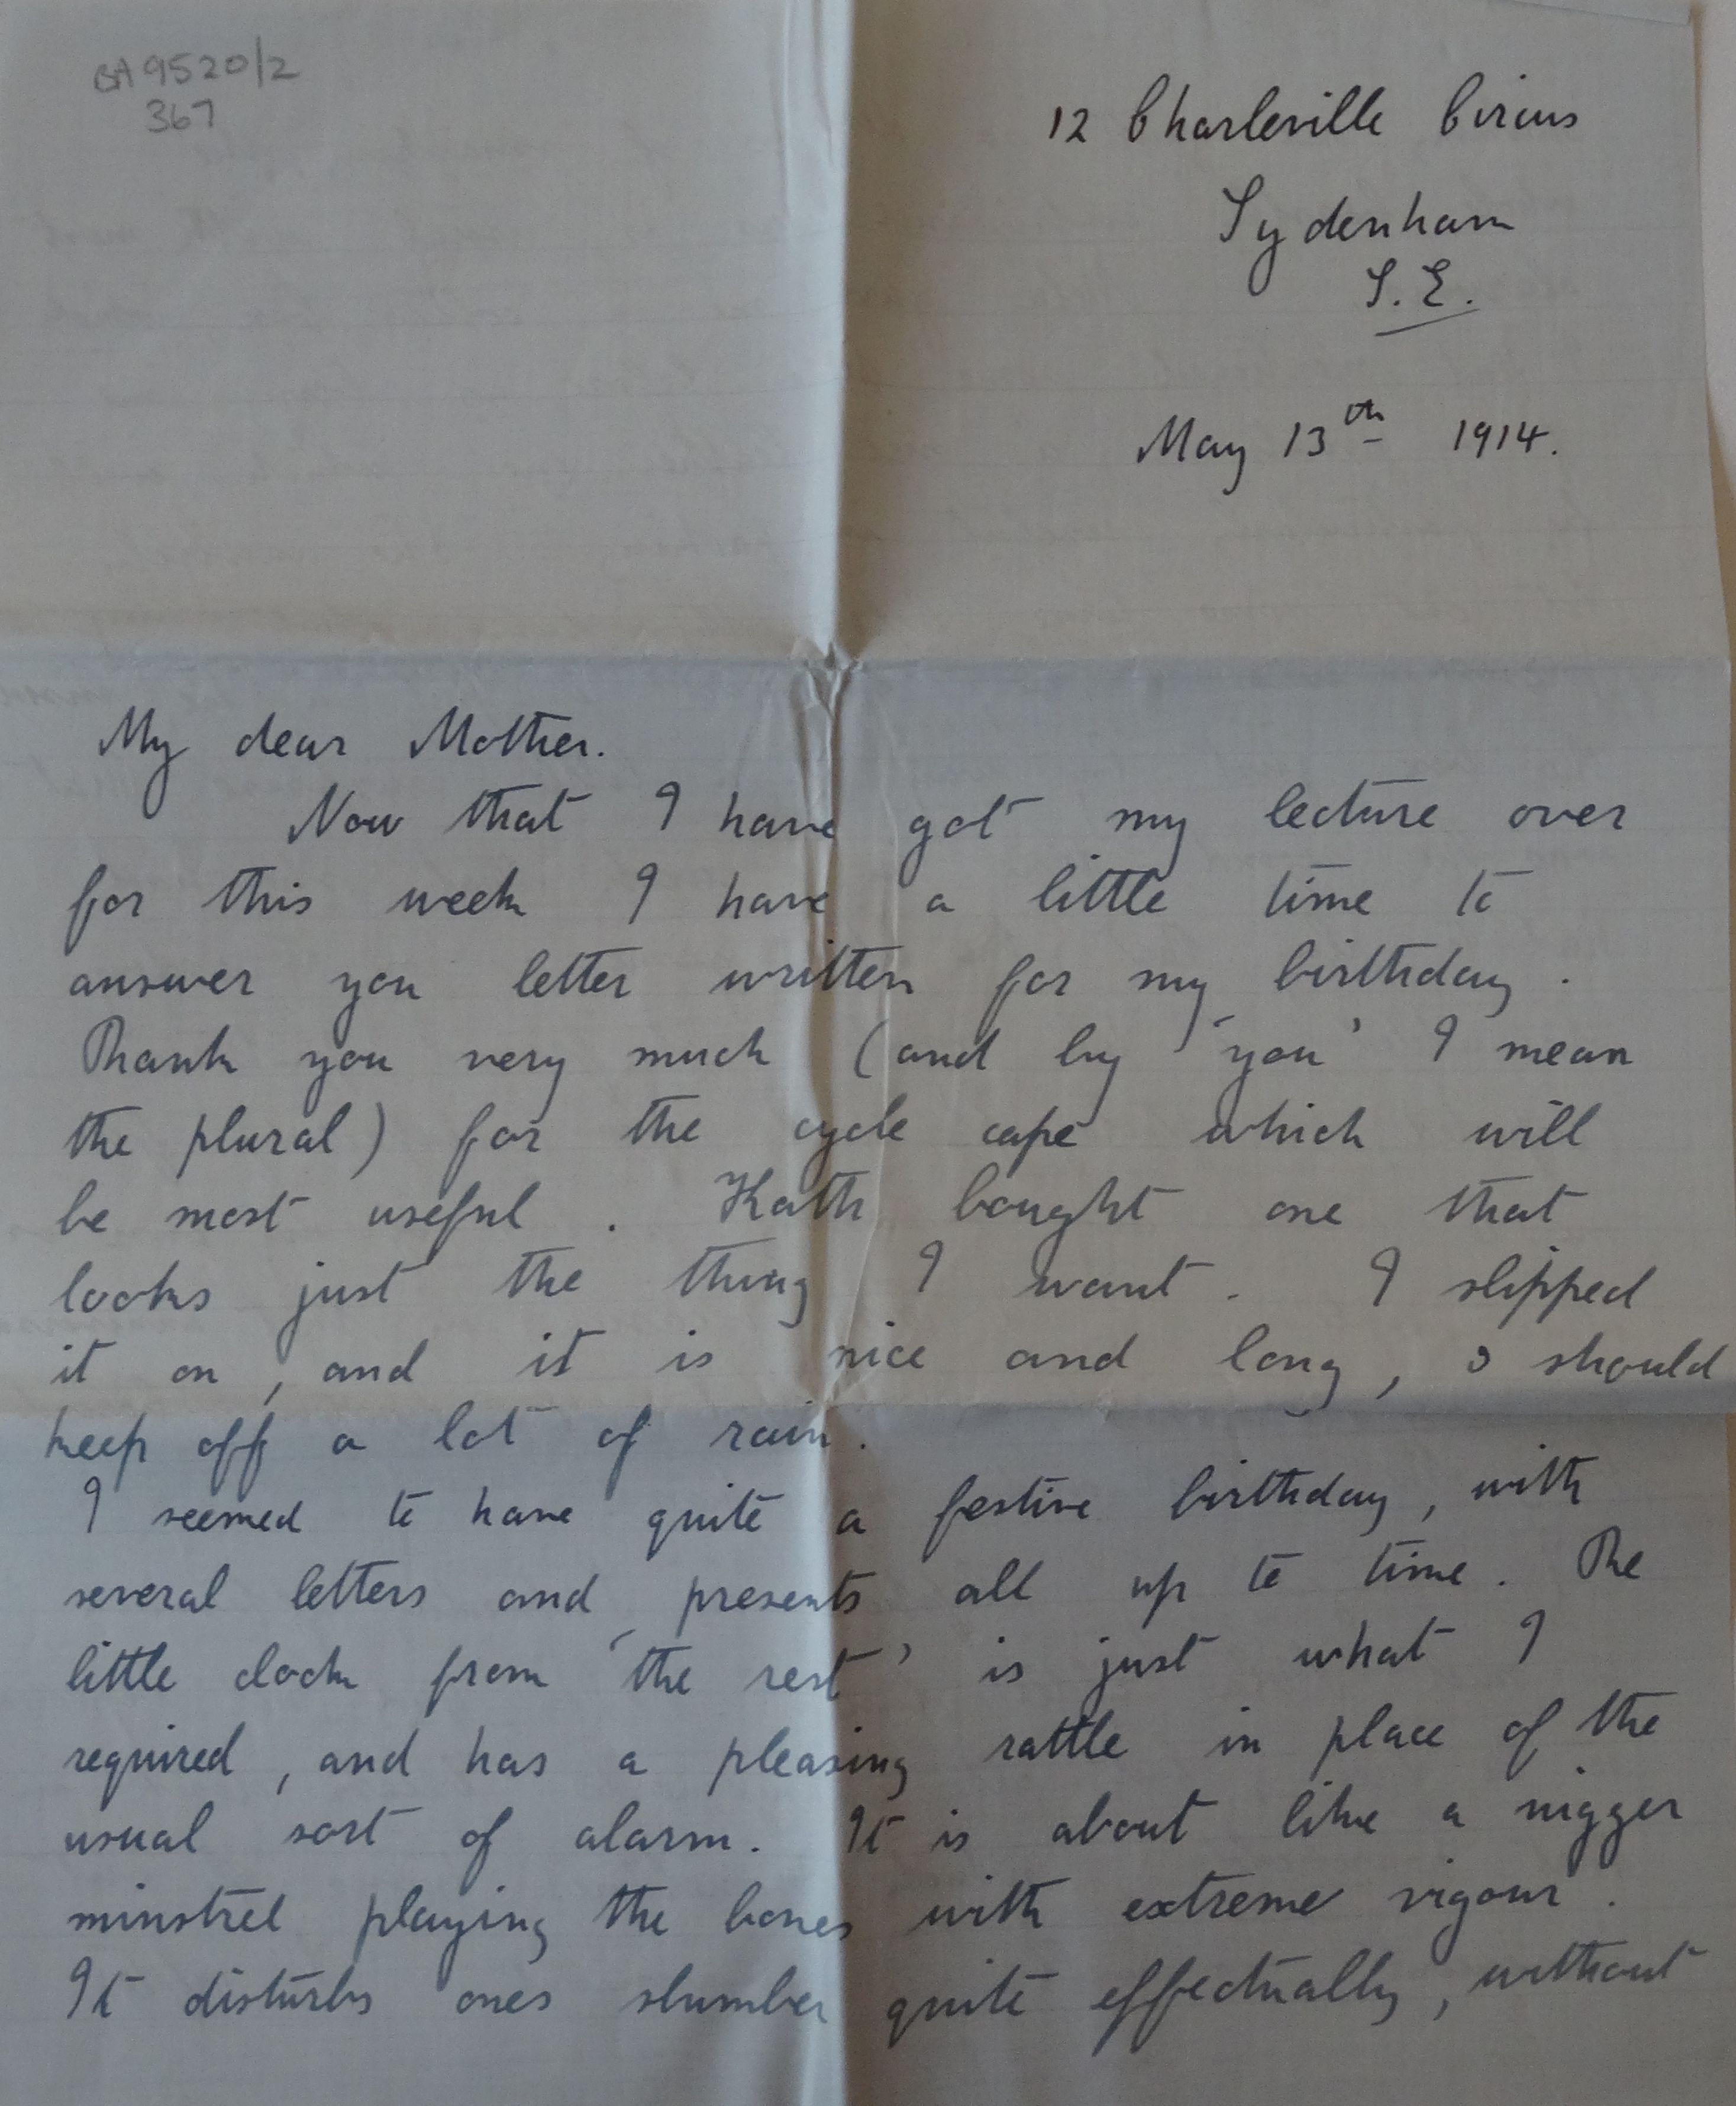 BA 9520/2
367
12 Charleville Circus
Sydenham
S.E.
May 13th 1914.
My dear Mother.
Now that I have got my lecture over
for this week I have a little time to
answer you letter written for my birthday.
Thank you very much (and by 'you' I mean
the plural) for the cycle cape which will
be most useful. Kath bought one that
looks just the thing I want. I slipped
it on, and it is nice and long, & should
keep off a lot of rain.
I seemed to have quite a festive birthday, with
several letters and presents all up to time. The
little clock from 'the rest' is just what I
required, and has a pleasing rattle in place of the
usual sort of alarm. It is about like a nigger
minstrel playing the bones with extreme vigour.
It disturbs ones slumber quite effectually, without